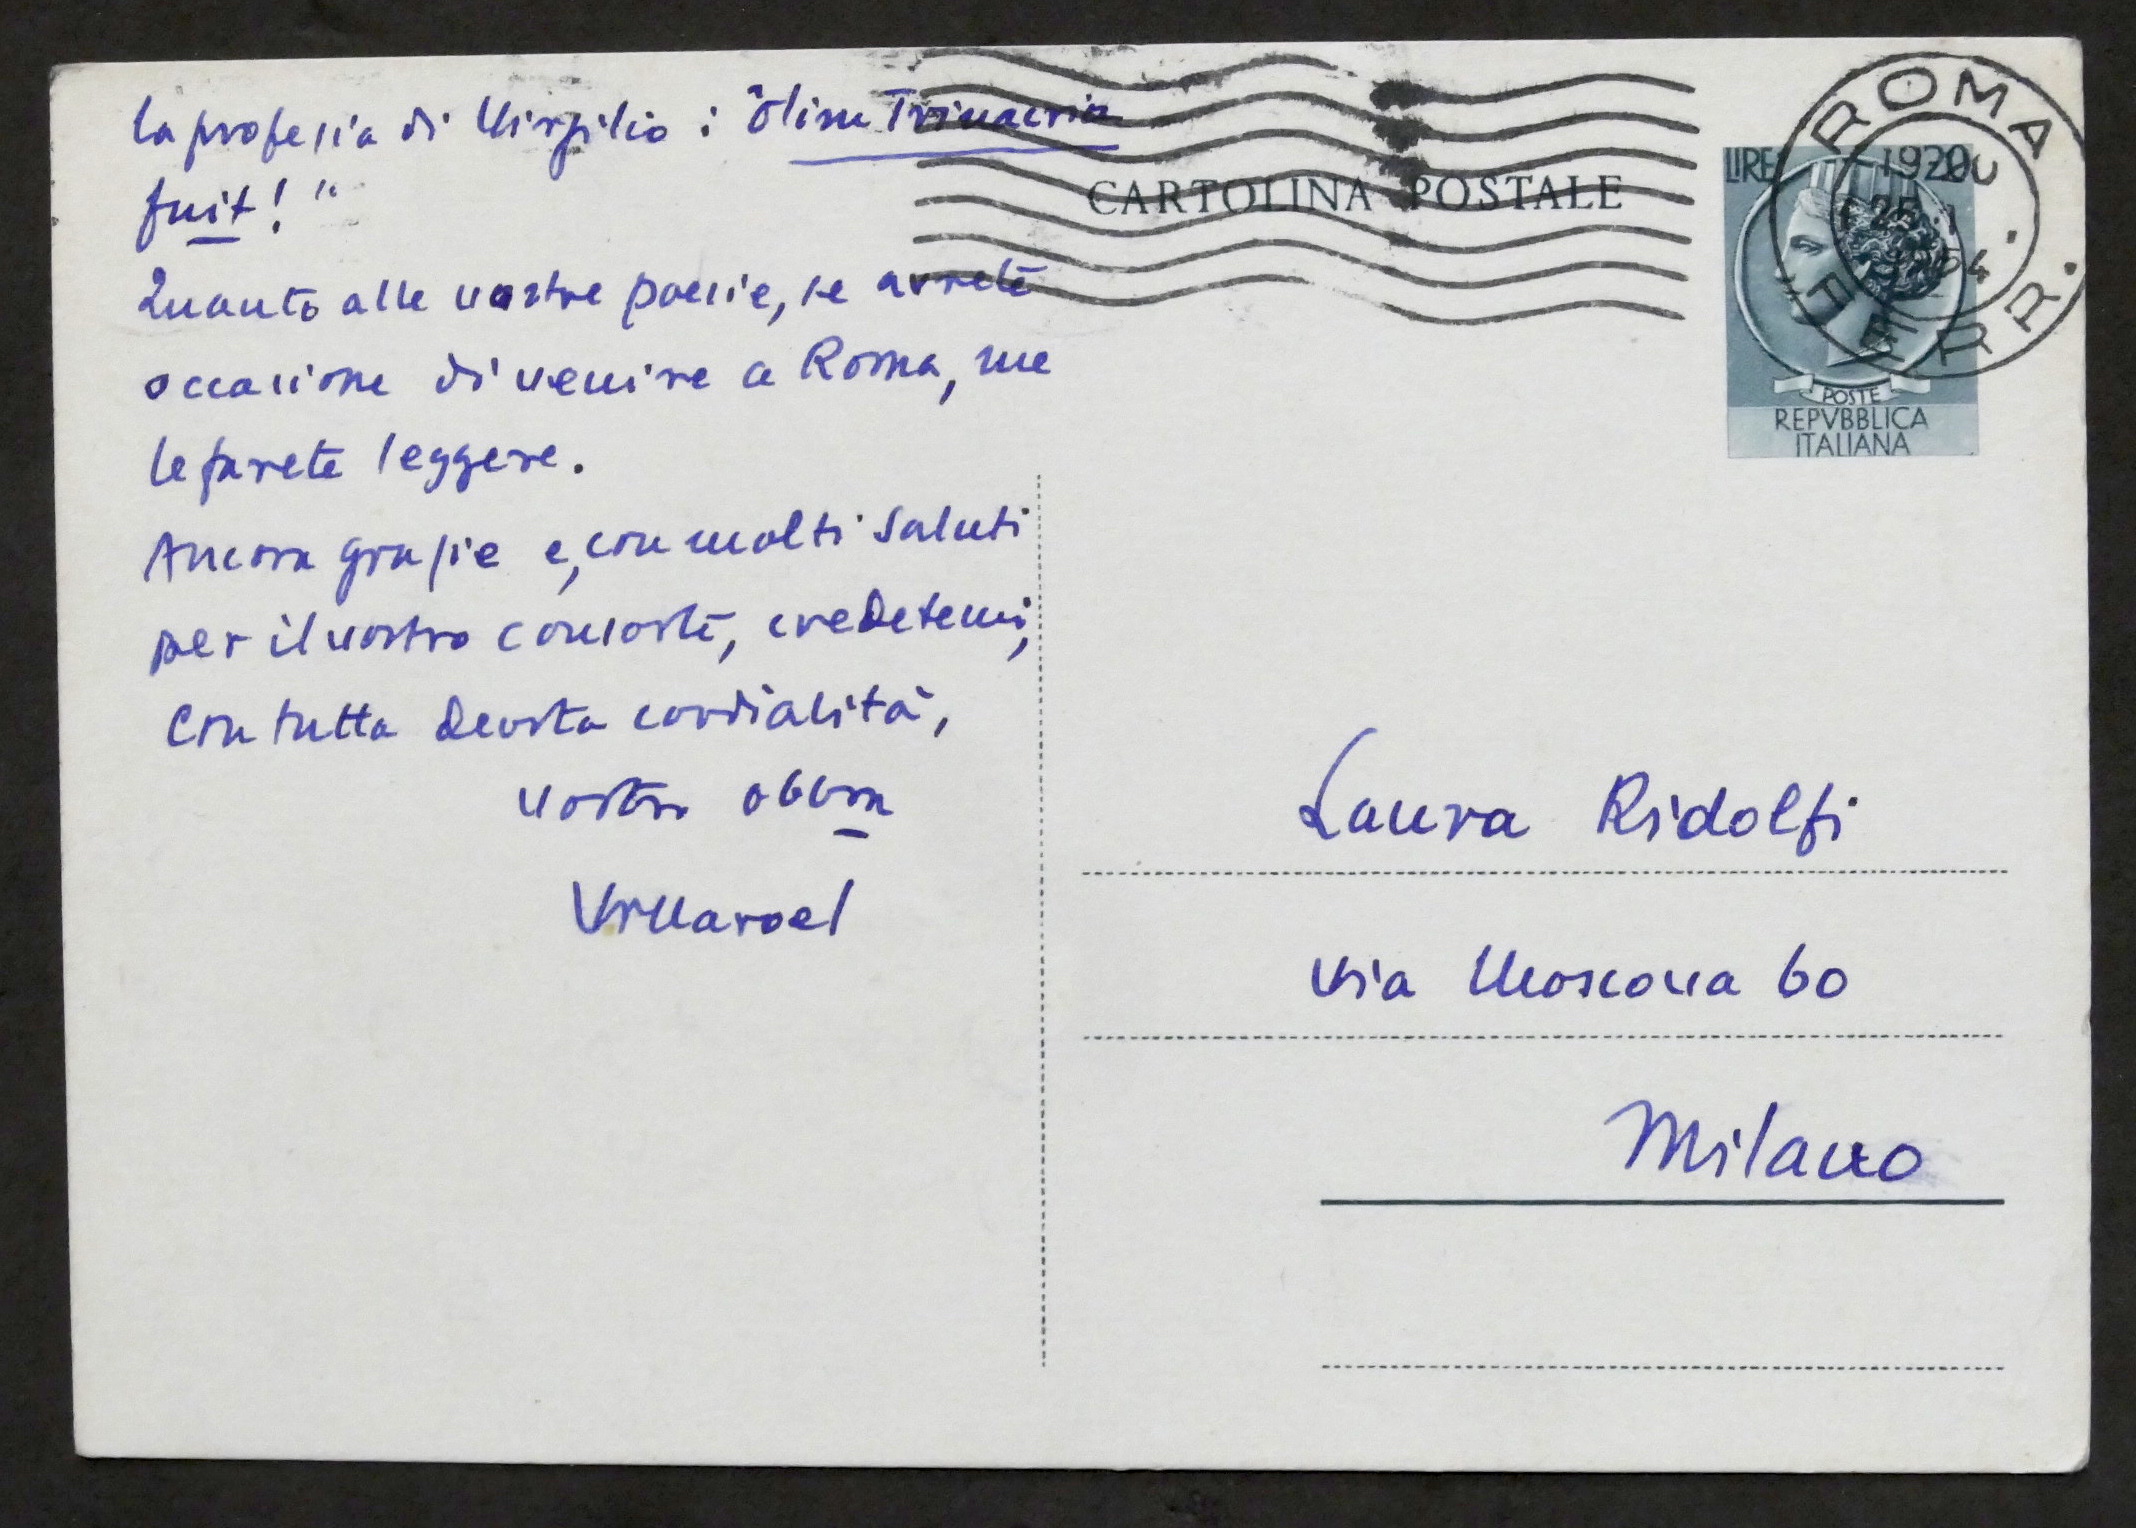 la profesia di Virgilio: "Olim Trinacria
fuit!"
Quanto alle vostre poesie, se avrete
occasione di venire a Roma, me
le farete leggere.
Ancora grazie e, con molti saluti
per il vostro consorte, credetemi,
con tutta devota cordialità,
vostro obbm
Villaroel
CARTOLINA POSTALE
ROMA
LIRE 20
POSTE
REPVBBLICA
ITALIANA
Laura Ridolfi
Via Moscova 60
Milano